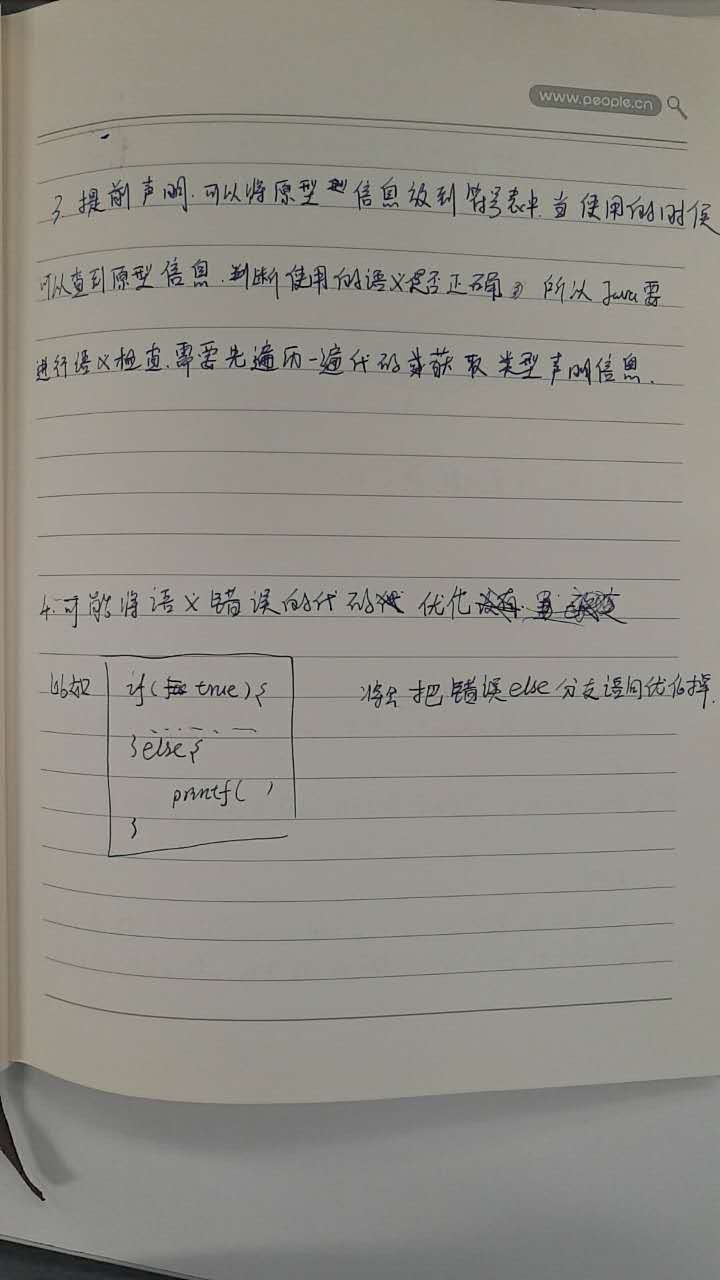 www.people.cn
3. 提前声明.可以将原型 信息放到符号表中.当使用的时候
可以查到原型信息.判断使用的语义是否正确 所以Java需
进行语义检查.需要先遍历一遍代码 获取类型声明信息.
4.可能将语义错误的代码 优化
比如 if( true){ 将会把错误else分支语句优化掉.
}else{
printf( )
}